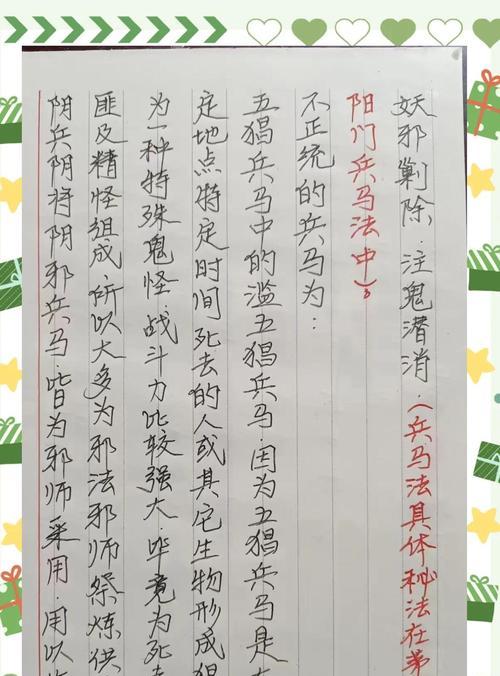 妖邪剿除．注鬼潜消．（兵马法具体秘法在第
阳门兵马法中）。
不正统的兵马为：
五猖兵马中的滥五猖兵马．因为五猖兵马是
定地点特定时间死去的人或其它生物形成
为一种特殊鬼怪．战斗力比较强大．毕竟为死
匪及精怪组成．所以大多为邪法邪师祭炼供
阴兵阴将阴邪兵马．皆为邪师采用．用以